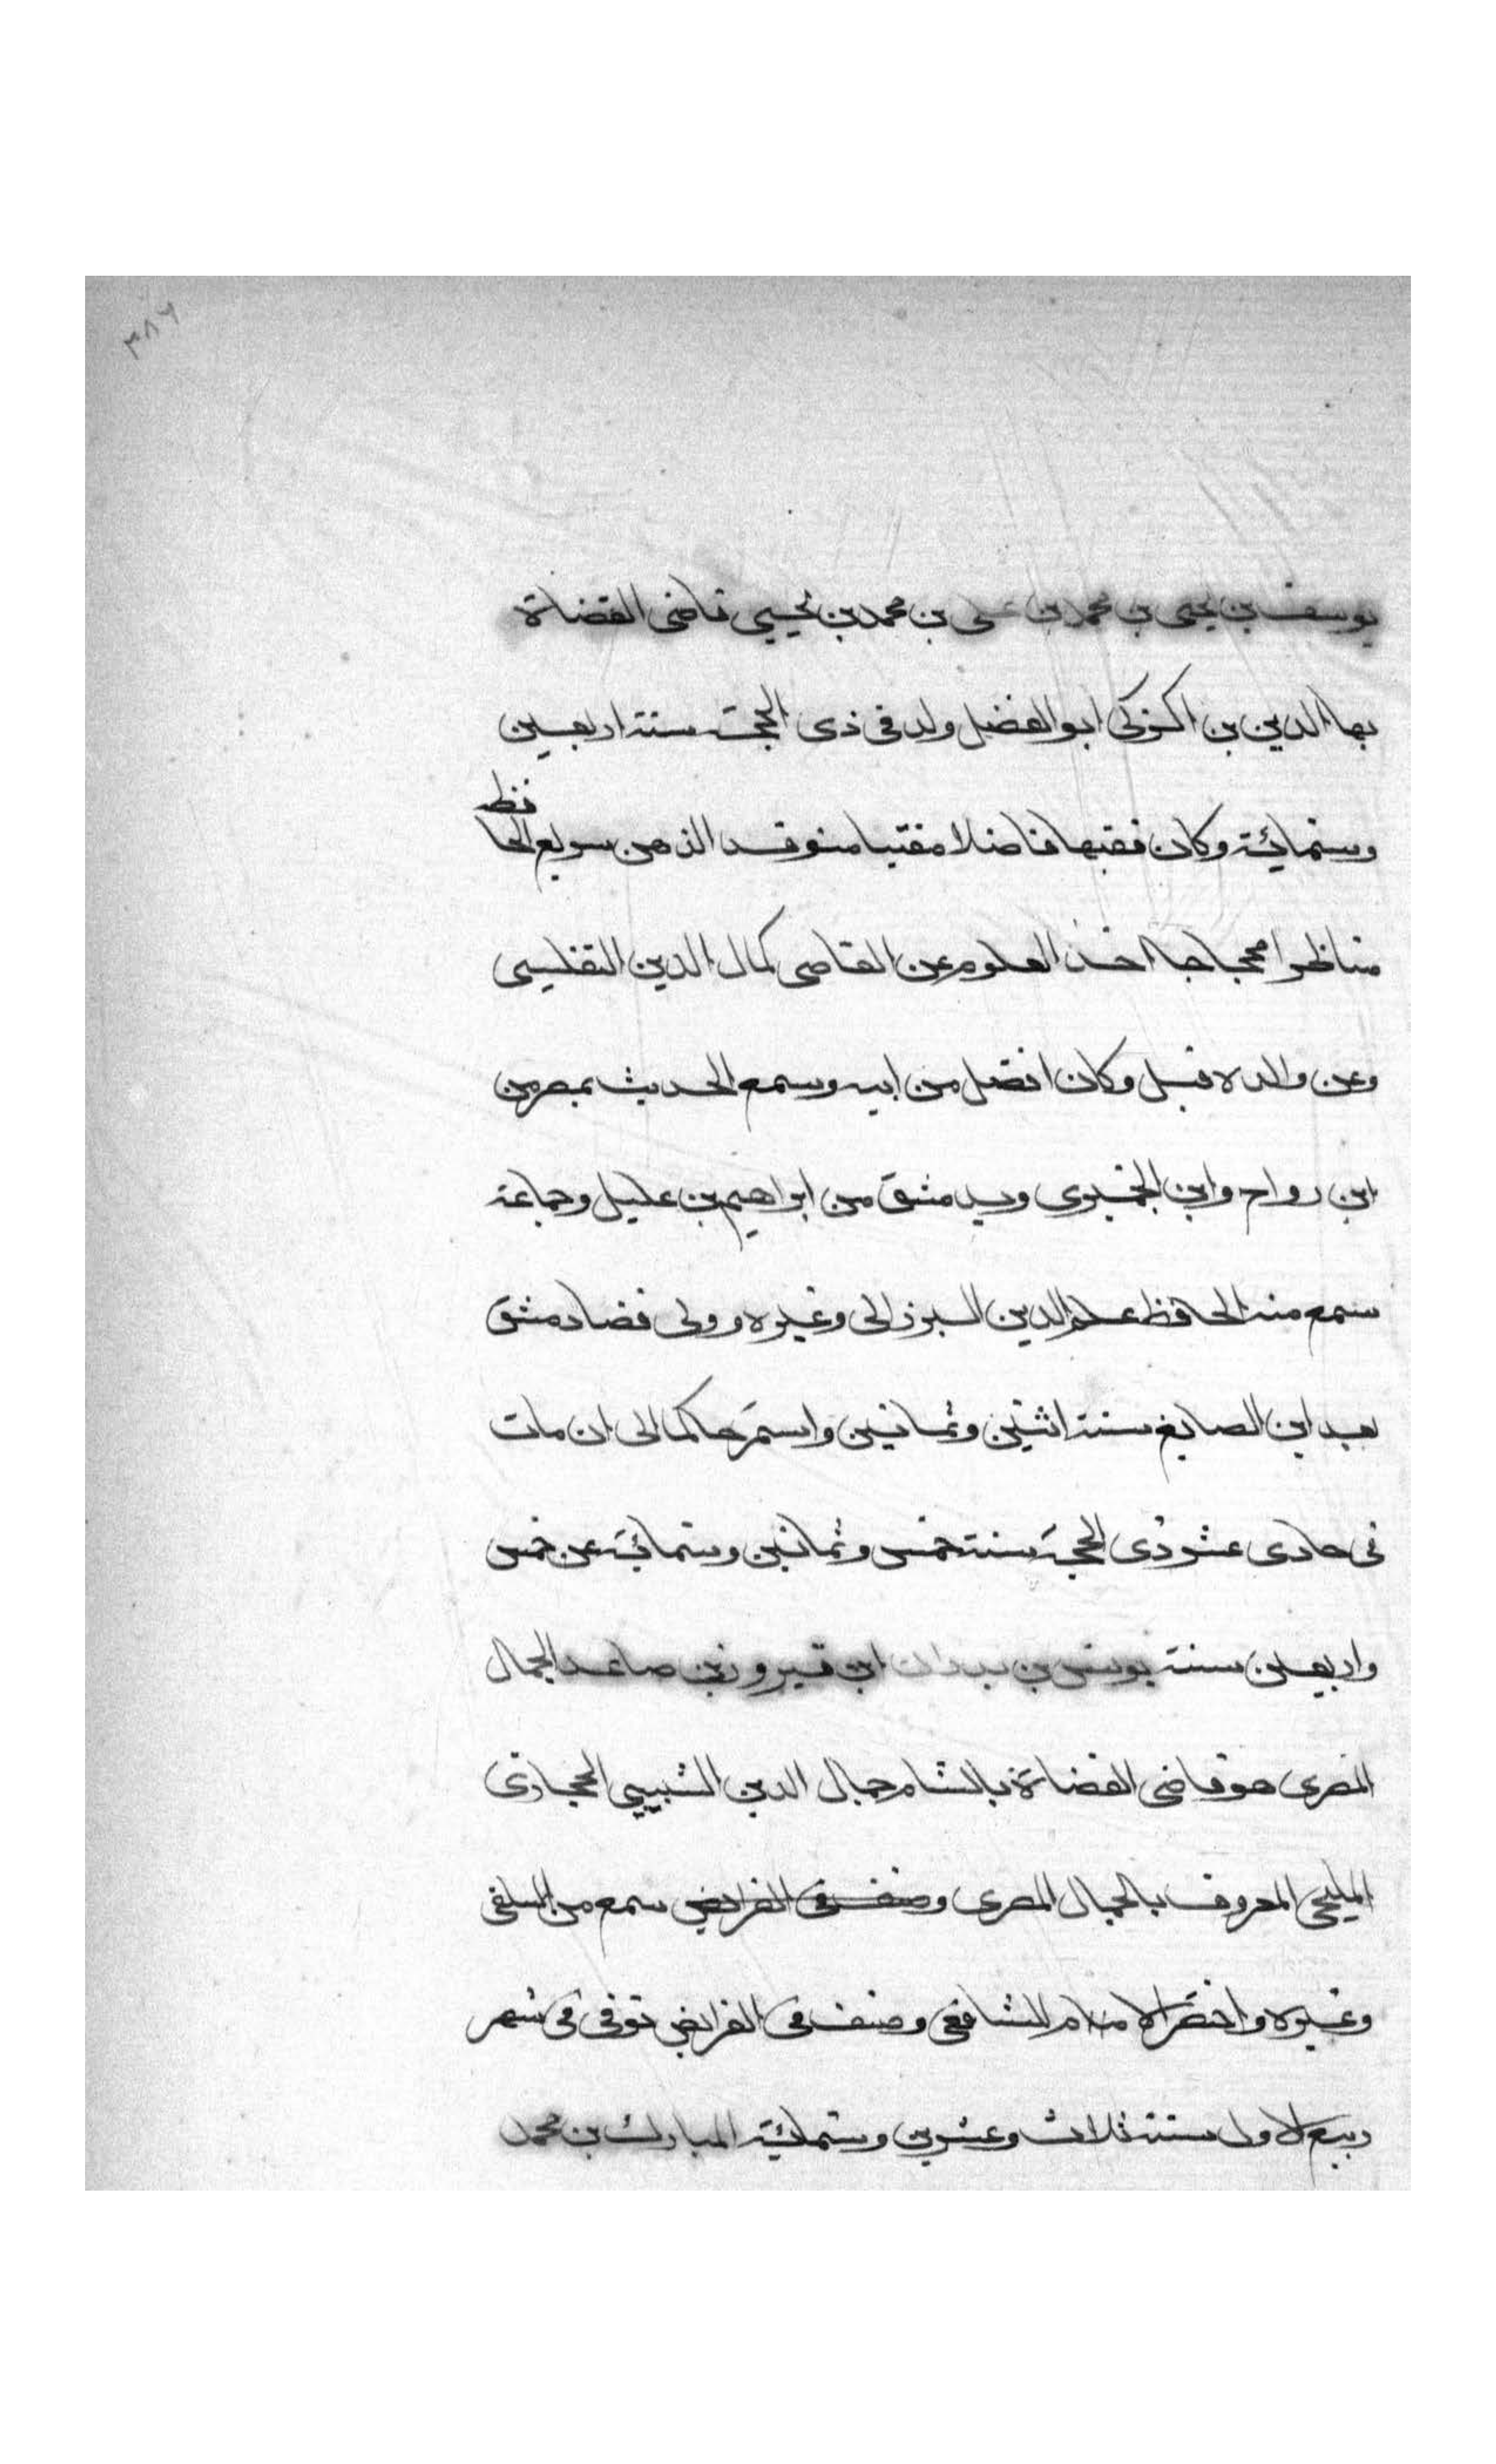 ٣٨٦
يوسف بن يحيى بن محمد بن على بن محمد بن يحيى قاضى القضاة
بها الدين بن الزكى ابو الفضل ولد فى ذى الحجة سنة اربعين
وستمائة وكان فقيها فاضلا مفتيا متوقد الذهن سريع الحافظ
مناظرا محجاجا اخذ العلوم عن القاضى كمال الدين التفليسى
وعن والده قبل وكان افضل من ابيه وسمع الحديث بمصر من
ابن رواح وابن الجميزى وبدمشق من ابراهيم بن خليل وجماعة
سمع منه الحافظ علم الدين البرزالى وغيره وولى قضا دمشق
بعد ابن الصايغ سنة اثنتين وثمانين واستمر حاكما الى ان مات
فى حادى عشر ذى الحجة سنة خمس وثمانين وستمائة عن خمس
واربعين سنة يونس بن بدران ابن فيروز بن صاعد الجمال
المصرى هو قاضى القضاة بالشام جمال الدين الشيبى الحجازى
المليحى المعروف بالجمال المصرى وصنف فى الفرايض سمع من السلفى
وغيره واختصر الام للشافعى وصنف فى الفرايض توفى فى شهر
ربيع الاول سنة ثلاث وعشرين وستمائة المبارك بن محمد